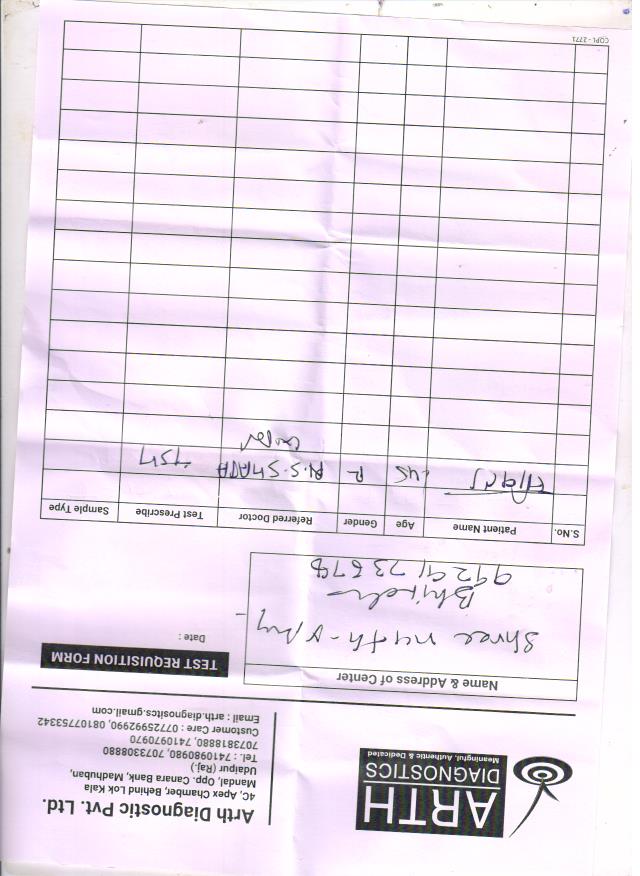 ARTH
DIAGNOSTICS
Meaningful, Authentic & Dedicated
Arth Diagnostic Pvt. Ltd.
4C, Apex Chamber, Behind Lok Kala
Mandal, Opp. Canara Bank, Madhuban,
Udaipur (Raj.)
Tel. : 7410980980, 7073308880
7073818880, 7410970970
Customer Care : 07725992990, 08107753342
Email : arth.diagnositcs.gmail.com
Name & Address of Center
TEST REQUISITION FORM
Shree
Date :
9929123678
S.No. Patient Name Age Gender Referred Doctor Test Prescribe Sample Type
COPI - 2771